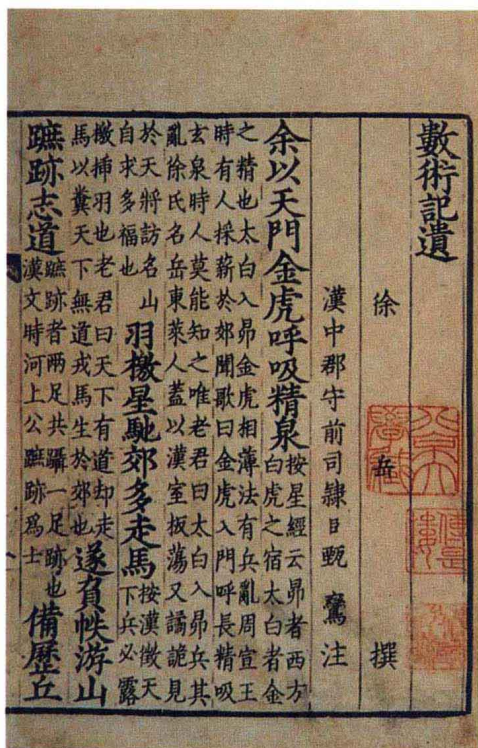 數術記遺
徐岳撰
漢中郡守前司隸臣甄鸞注
余以天門金虎呼吸精泉
按星經云昴者西方
白虎之宿太白者金
之精也太白入昴金虎相薄法有兵亂周宣王
時有人採薪於郊聞歌曰金虎入門呼長精吸
玄泉時人莫能知之唯老君曰太白入昴兵其
亂徐氏名岳東萊人蓋以漢室板蕩又譎詭見
於天將訪名山
自求多福也
羽檄星馳郊多走馬
按漢徵天
下兵必露
檄插羽也老君曰天下有道却走
馬以糞天下無道戎馬生於郊也
遂負帙游山
蹠跡志道
蹠跡者兩足共躡一足跡也
漢文時河上公蹠跡爲士
備歷丘